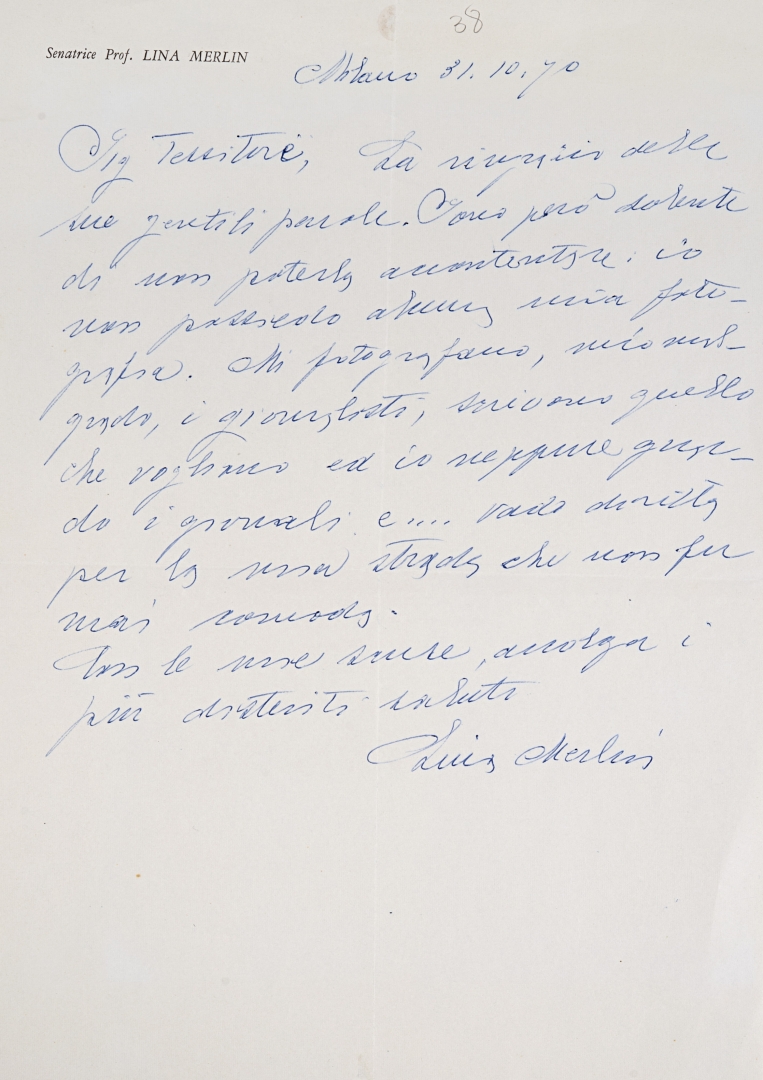 38
Senatrice Prof. LINA MERLIN
Milano 31.10.70
Sig Tessitore, La ringrazio delle
sue gentili parole. Sono però dolente
di non poterla accontentare: io
non possiedo alcuna mia foto-
grafia. Mi fotografano, mio mal-
grado, i giornalisti, scrivono quello
che vogliano ed io neppure guar-
do i giornali e.... vado diritta
per la mia strada che non fu
mai comoda.
Con le mie scuse, accolga i
più distinti saluti
Lina Merlin